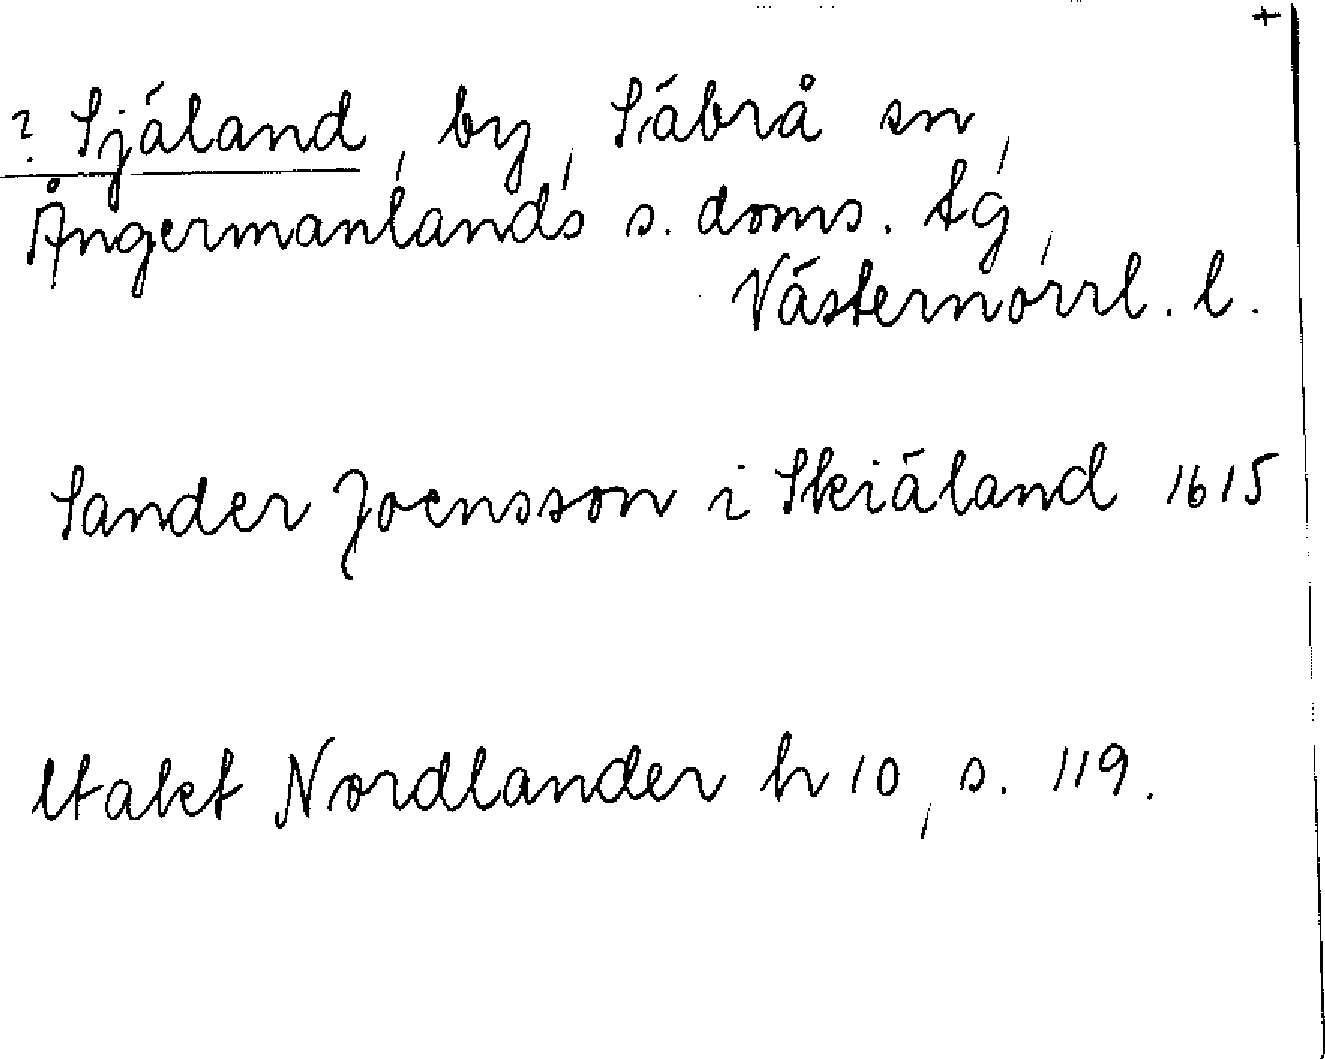 +
? Själand, by, Säbrå sn,
Ångermanlands s. doms. tg,
Västernorrl. l.
Sander Joensson i Skiäland 1615
Utakt Nordlander h 10, s. 119.